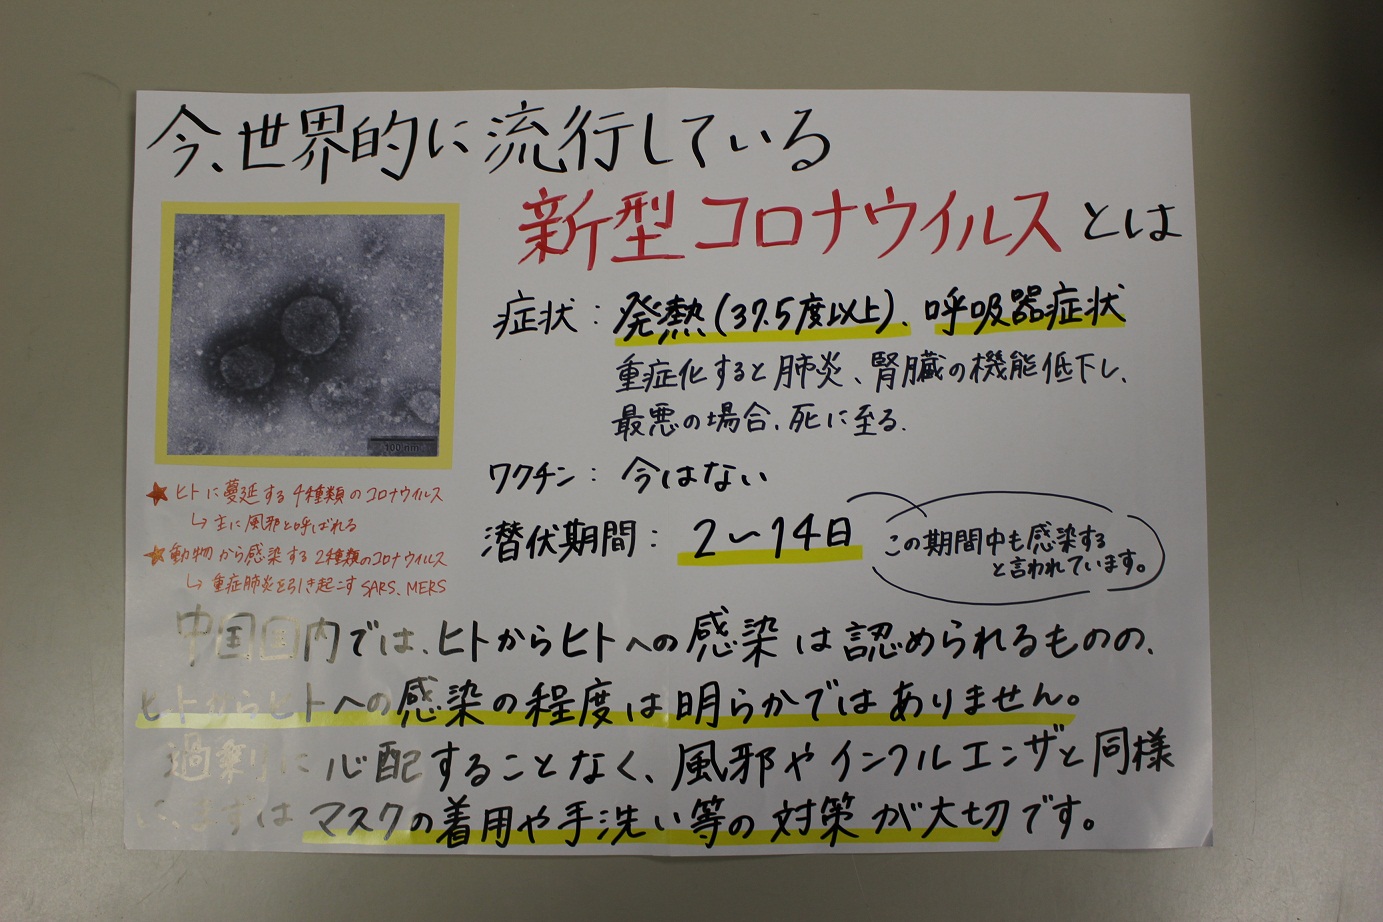 今、世界的に流行している
新型コロナウイルスとは
症状：発熱(37.5度以上)、呼吸器症状
重症化すると肺炎、腎臓の機能低下し、
最悪の場合、死に至る。
ワクチン：今はない
潜伏期間：2〜14日
この期間中も感染する
と言われています。
100 nm
★ヒトに蔓延する4種類のコロナウイルス
↳主に風邪と呼ばれる
★動物から感染する2種類のコロナウイルス
↳重症肺炎を引き起こすSARS、MERS
中国国内では、ヒトからヒトへの感染は認められるものの、
ヒトからヒトへの感染の程度は明らかではありません。
過剰に心配することなく、風邪やインフルエンザと同様
に、まずはマスクの着用や手洗い等の対策が大切です。